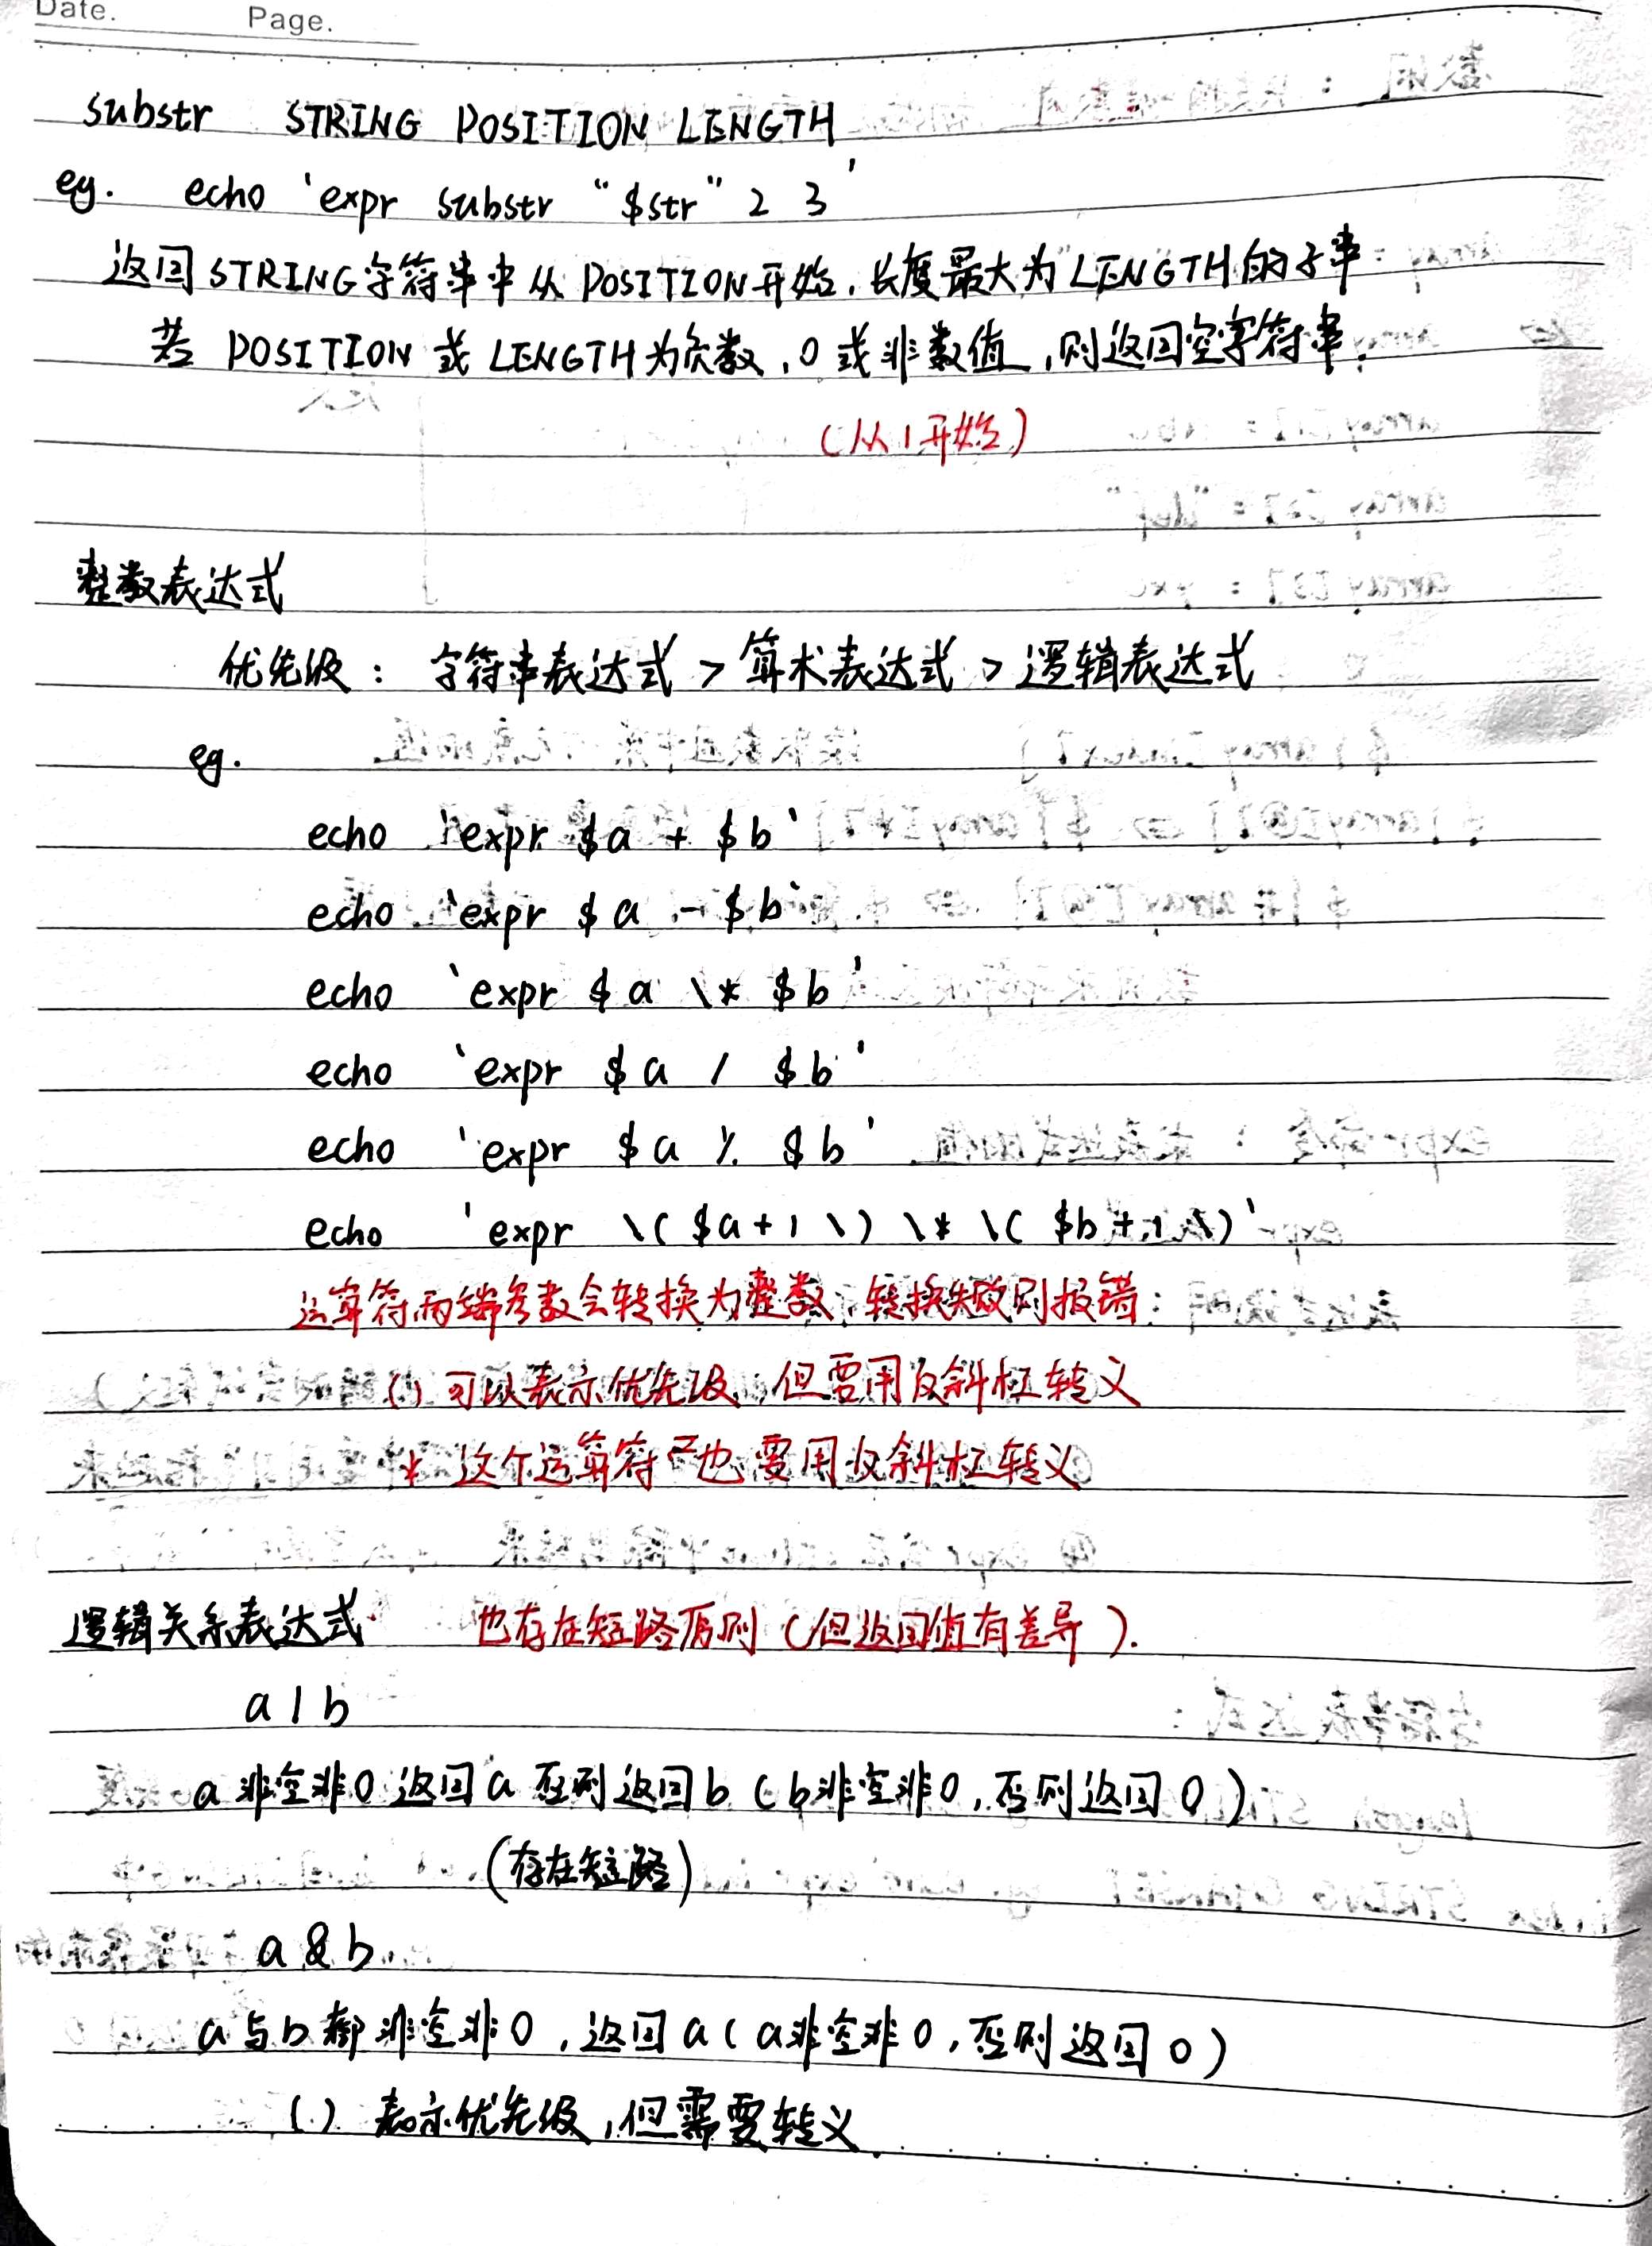 Date.
Page.
substr STRING POSITION LENGTH
eg. echo `expr substr "$str" 2 3`
返回STRING字符串中从POSITION开始,长度最大为LENGTH的子串.
若POSITION或LENGTH为负数,0或非数值,则返回空字符串.
(从1开始)
整数表达式
优先级: 字符串表达式 > 算术表达式 > 逻辑表达式
eg.
echo `expr $a + $b`
echo `expr $a - $b`
echo `expr $a \* $b`
echo `expr $a / $b`
echo `expr $a % $b`
echo `expr \( $a+1 \) \* \( $b+1 \)`
运算符两端参数会转换为整数,转换失败则报错
() 可以表示优先级,但要用反斜杠转义
* 这个运算符也要用反斜杠转义
逻辑关系表达式 也存在短路原则(但返回值有差异).
a | b
a非空非0返回a 否则返回b (b非空非0,否则返回0)
(存在短路)
a & b
a与b都非空非0,返回a(a非空非0,否则返回0)
() 表示优先级,但需要转义